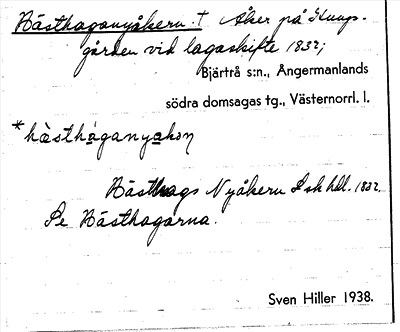 Hästhaganyåkern. † Åker på Kungs-
gården vid lagaskifte 1832;
Bjärtrå s:n., Ångermanlands
södra domsagas tg., Västernorrl. l.
*hàsthàganyakọn
Hästhags Nyåkern Lsk hdl. 1832.
Se Hästhagarna.
Sven Hiller 1938.